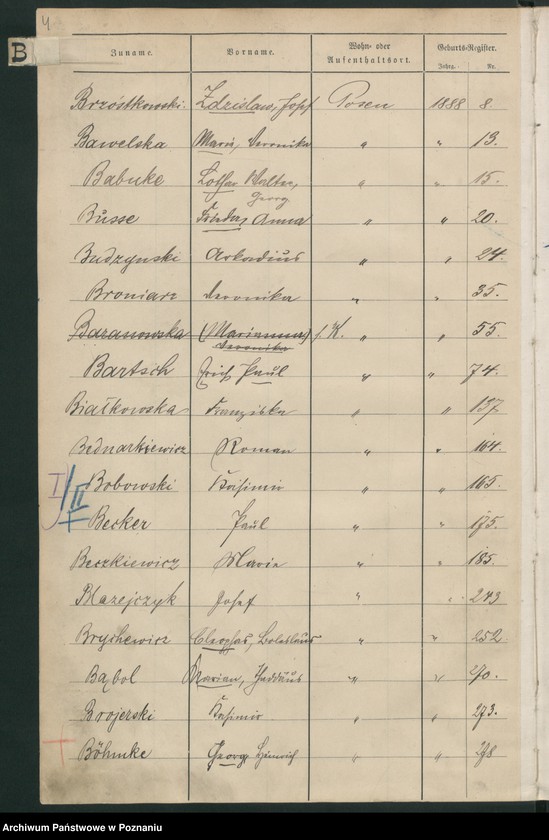 4.
B
Zuname. Vorname. Wohn- oder Aufenthaltsort. Geburts-Register.
Jahrg. Nr.
Brzostkowski. Zdzislaw, Josef Posen 1888 8
Bawelska Marie, Veronika " " 13.
Babuke Lothar Walter, Georg " " 15.
Busse Frieda, Anna " " 20.
Budzynski Arkadius " " 24.
Broniarz Veronika " " 35.
Baranowska (Marianna) Veronika " " 55.
Bartsch Erich Paul " " 74.
Białkowska Franziska " " 137
Bednarkiewicz Roman " " 164.
I/II Bobowski Kasimir " " 165.
Becker Paul " " 175.
Beczkiewicz Marie " " 185.
Błazejczyk Josef " " 243
Brychewicz Cleophas, Boleslaus " " 252.
Bąbol Marian, Thaddäus " " 270.
Brojerski Kasimir " " 273.
Böhmke Georg Heinrich " " 278
Archiwum Państwowe w Poznaniu szukajwarchiwach.gov.pl